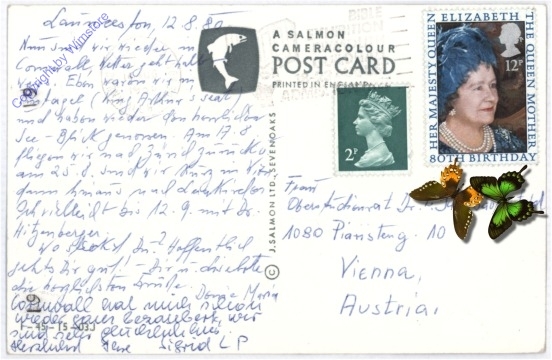 Launceston, 12.8.80
Nun sind wir wieder in
Cornwall, Wetter geht halb-
wegs. Eben waren wir in
Tintagel (King Arthur's seat)
und haben wieder den herrlichen
See-Blick genossen. Am 17.8.
fliegen wir nach Zürich zurück,
am 25.8. sind wir kurz in Wien
dann
bis 12.9. mit Dr.
Hitzenberger.
Wo steckst Du? Hoffentlich
geht's Dir gut! – Dir u.
die herzlichsten Grüße.
Donna Maria
Cornwall hat mich schon
wieder ganz bezaubert, wir
sind sehr glücklich hier.
Herzlichst Ihre Sigrid L P
Copyright by Wimstore
61
61
A SALMON
CAMERACOLOUR
POST CARD
PRINTED IN ENGLAND
J. SALMON LTD., SEVENOAKS ©
2P
HER MAJESTY QUEEN ELIZABETH THE QUEEN MOTHER
12P
80TH BIRTHDAY
Frau
Oberstudienrat Dr.
1080 Piaristeng. 10
Vienna,
Austria.